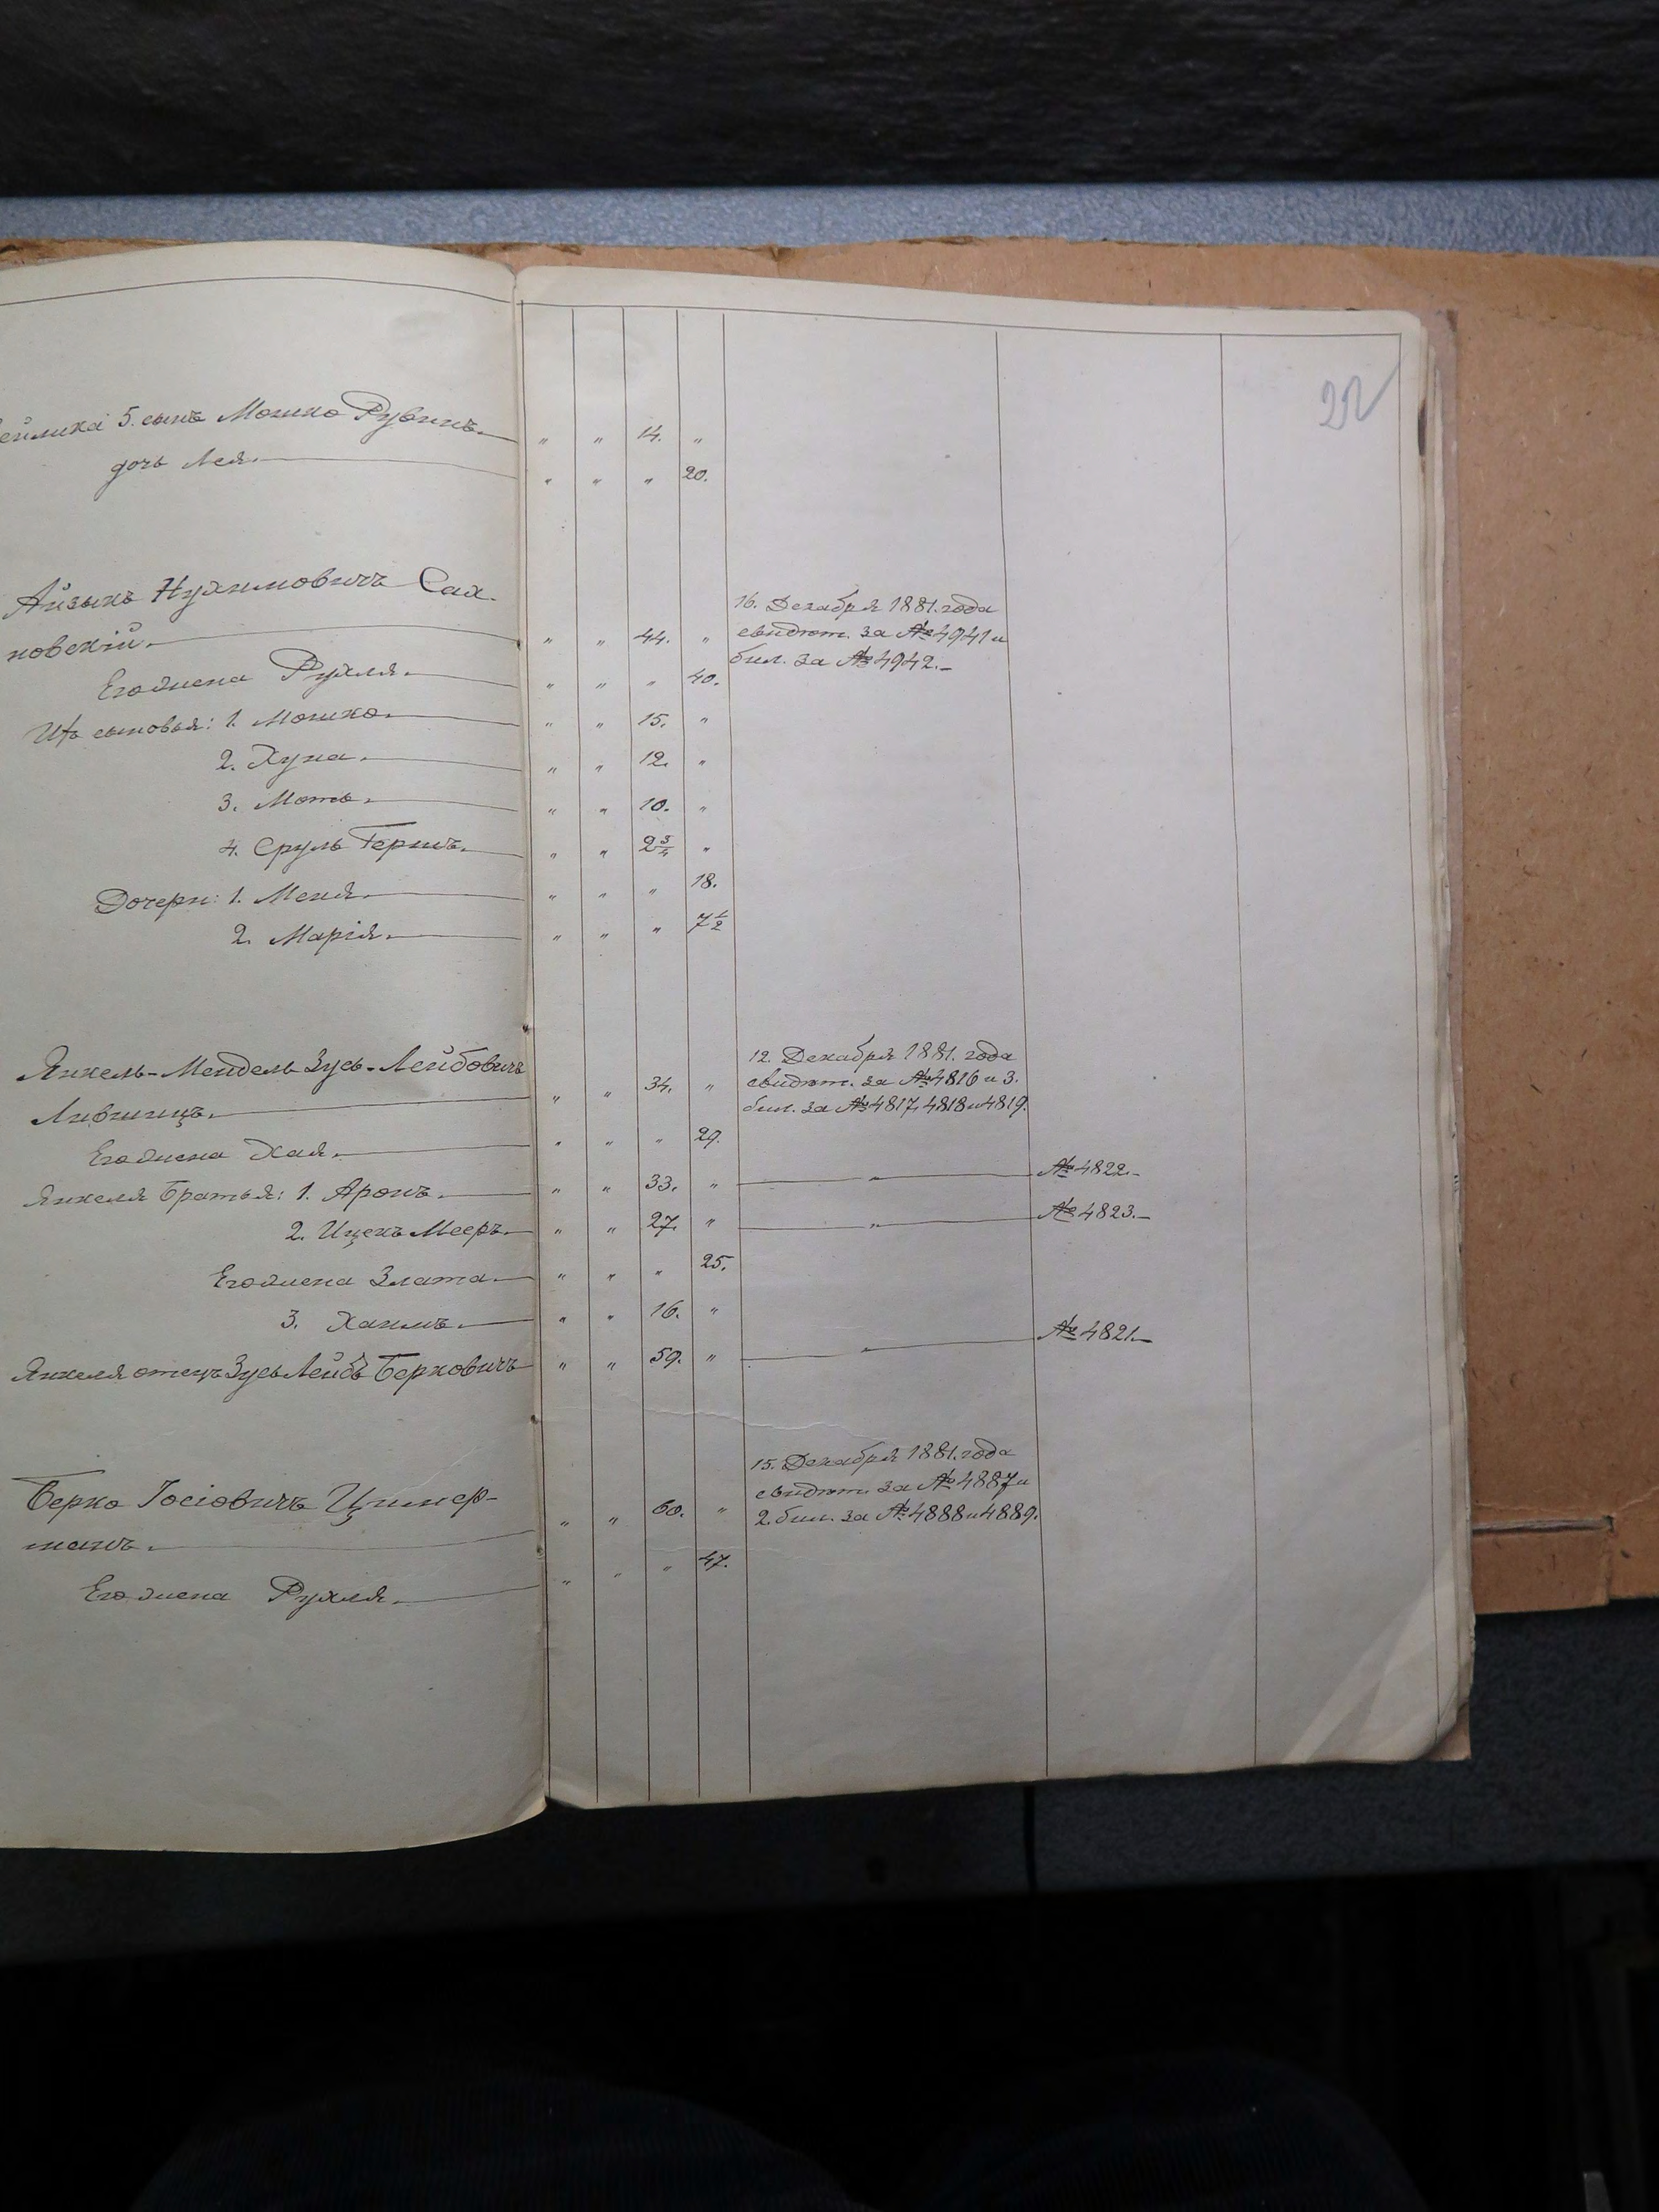 22
5. сынъ Мошко Рувинъ. " " 14. "
дочь Лея. " " " 20.
Айзыкъ Нухимовичъ Сах-
новскій. " " 44. "
16. Декабря 1881. года
свидѣт. за № 4941 и
бил. за № 4942.
Его жена Рухля. " " " 40.
Ихъ сыновья: 1. Мошко. " " 15. "
2. Хуна. " " 12. "
3. Моть. " " 10. "
4. Сруль Гершъ. " " 2 3/4 "
Дочери: 1. Меня. " " " 18.
2. Марія. " " " 7 1/2
Янкель-Мендель Зусь-Лейбовичъ
Лившицъ. " " 34. "
12. Декабря 1881. года
свидѣт. за № 4816 и 3.
бил. за № 4817, 4818 и 4819.
Его жена Хая. " " " 29.
Янкеля братья: 1. Аронъ. " " 33. " " № 4822.
2. Ицекъ Мееръ. " " 27. " " № 4823.
Его жена Злата. " " " 25.
3. Хаимъ. " " 16. "
Янкеля отецъ Зусь Лейбъ Берковичъ " " 59. " " № 4821.
Берко Іосіовичъ Цимер-
манъ. " " 60. "
15. Декабря 1881. года
свидѣт. за № 4887 и
2. бил. за № 4888 и 4889.
Его жена Рухля. " " " 47.